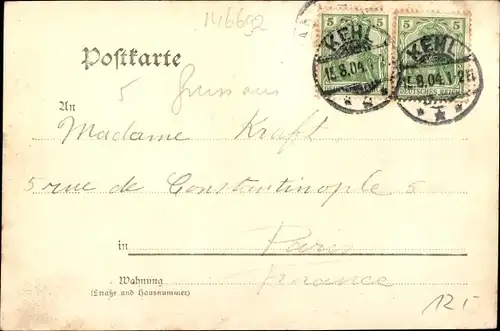 146692
5 5 5 5
KEHL KEHL
15.8.04. 15.8.04.1-2N.
DEUTSCHES REICH
Postkarte
5
An
Madame Kraft
5 rue de Constantinople 5
in Paris
France
Wohnung
(Straße und Hausnummer)
12.-